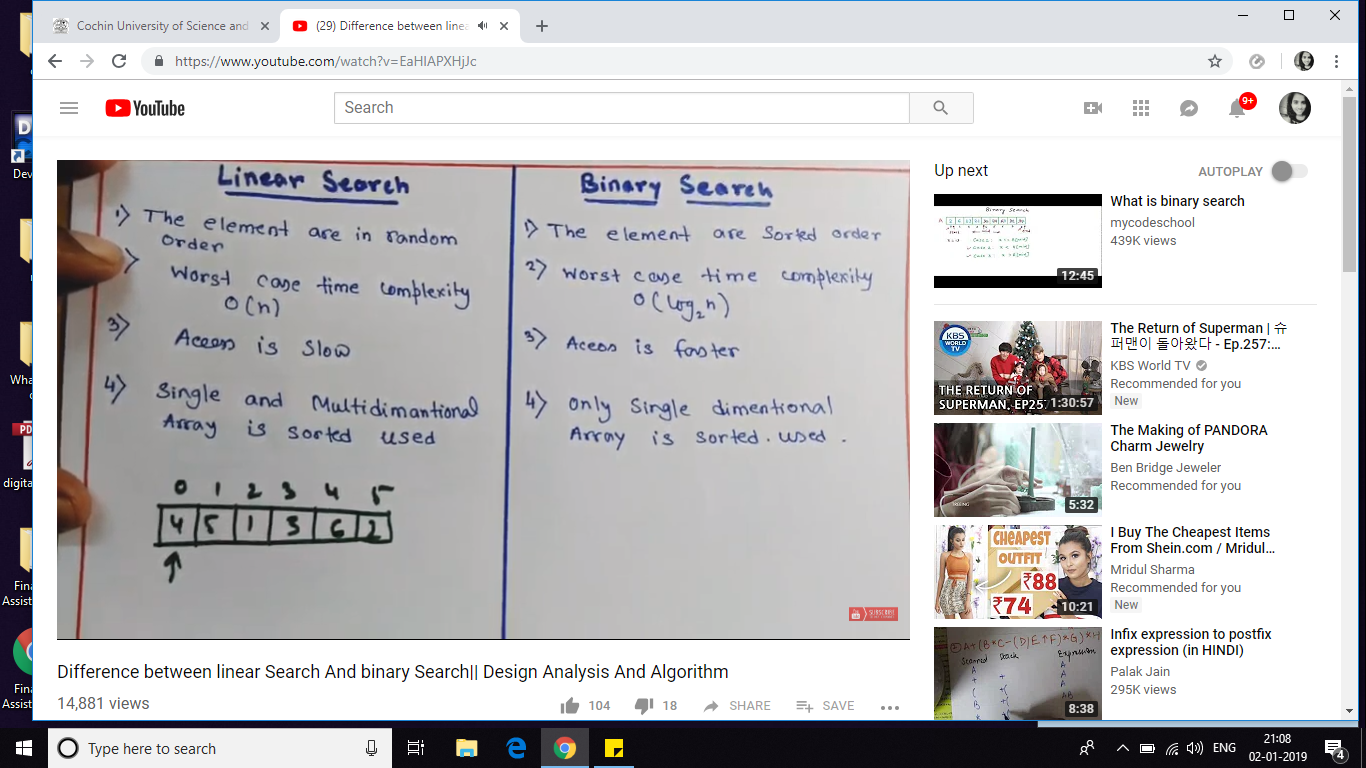 Cochin University of Science and
(29) Difference between linea
https://www.youtube.com/watch?v=EaHIAPXHjJc
YouTube
Search
9+
Linear Search
1) The element are in random
order
Worst case time complexity
O(n)
3) Access is slow
4) Single and Multidimantional
Array is sorted used
0 1 2 3 4 5
4 5 1 3 6 2
Binary Search
1) The element are Sorted order
2) Worst case time complexity
O(log2n)
3) Access is faster
4) Only Single dimentional
Array is sorted. used.
SUBSCRIBE
Difference between linear Search And binary Search|| Design Analysis And Algorithm
14,881 views
104 18 SHARE SAVE
Up next
AUTOPLAY
What is binary search
mycodeschool
439K views
12:45
The Return of Superman | 슈
퍼맨이 돌아왔다 - Ep.257:...
KBS World TV
Recommended for you
New
KBS
WORLD
TV
THE RETURN OF
SUPERMAN, EP257
1:30:57
The Making of PANDORA
Charm Jewelry
Ben Bridge Jeweler
Recommended for you
5:32
I Buy The Cheapest Items
From Shein.com / Mridul...
Mridul Sharma
Recommended for you
New
CHEAPEST
OUTFIT
₹88
₹74
10:21
Infix expression to postfix
expression (in HINDI)
Palak Jain
295K views
Scanned Stack Expression
8:38
Dev
Wha
PD
digita
Fina
Assist
Fina
Assist
Type here to search
ENG
21:08
02-01-2019
4